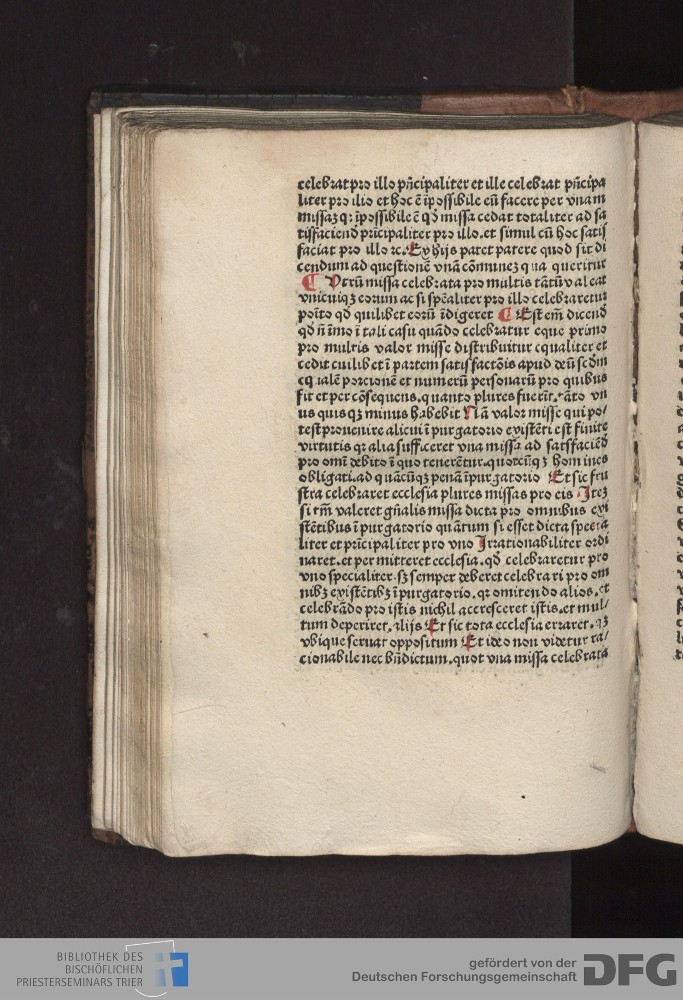 celebrat pro illo pñcipaliter et ille celebrat pñcipa
liter pro ilio et hoc ē īpossibile eū facere per vnam
missaȝ qꝛ īpossibile ē qđ missa cedat totaliter ad sa
tisfaciend pricipaliter pro illo. et simul cū hoc satis
faciat pro illo ⁊c. Ex hijs patet patere quod sit di
cendum ad questionē vnā cōmuneȝ qua queritur
¶ Vtrū missa celebrata pro multis tātū valeat
vnicuiqȝ eorum ac si spēaliter pro illo celebraretur
poīto qđ quilibet eorū īdigeret ¶ Est em̄ dicend
qđ ñ īmo ī tali casu quādo celebratur eque primo
pro multis valor misse distribuitur equaliter et
cedit cuilibet ī partem satisfactōis apud deū scdm
equalē porcionē et numerū personarū pro quibus
fit et per cōsequens. quanto plures fuerīt. tāto vn
us quisqȝ minus habebit Nā valor misse qui po/
test prouenire alicui ī purgatorio existēti est finite
virtutis qꝛ alia sufficeret vna missa ad satsfaciēd
pro omī debito ī quo tenerētur. quotcūqȝ homines
obligati. ad quācūqȝ penā īpurgatorio Et sic fru
stra celebraret ecclesia plures missas pro eis Iteȝ
si tm̄ valeret gñalis missa dicta pro omnibus exi
stētibus ī purgatorio quātum si esset dicta specia
liter et prīcipaliter pro vno Irrationabiliter ordi
naret. et permitteret ecclesia. qđ celebraretur pro
vno specialiter. sȝ semper deberet celebrari pro om
nibȝ existētibȝ ī purgatorio. qꝛ omitendo alios. et
celebrādo pro istis nichil accresceret istis. et mul/
tum deperiret. alijs Et sic tota ecclesia erraret. qȝ
vbique seruat oppositum Et ideo non videtur ra/
cionabile nec bñdictum. quot vna missa celebrata
BIBLIOTHEK DES
BISCHÖFLICHEN
PRIESTERSEMINARS TRIER
gefördert von der
Deutschen Forschungsgemeinschaft
DFG